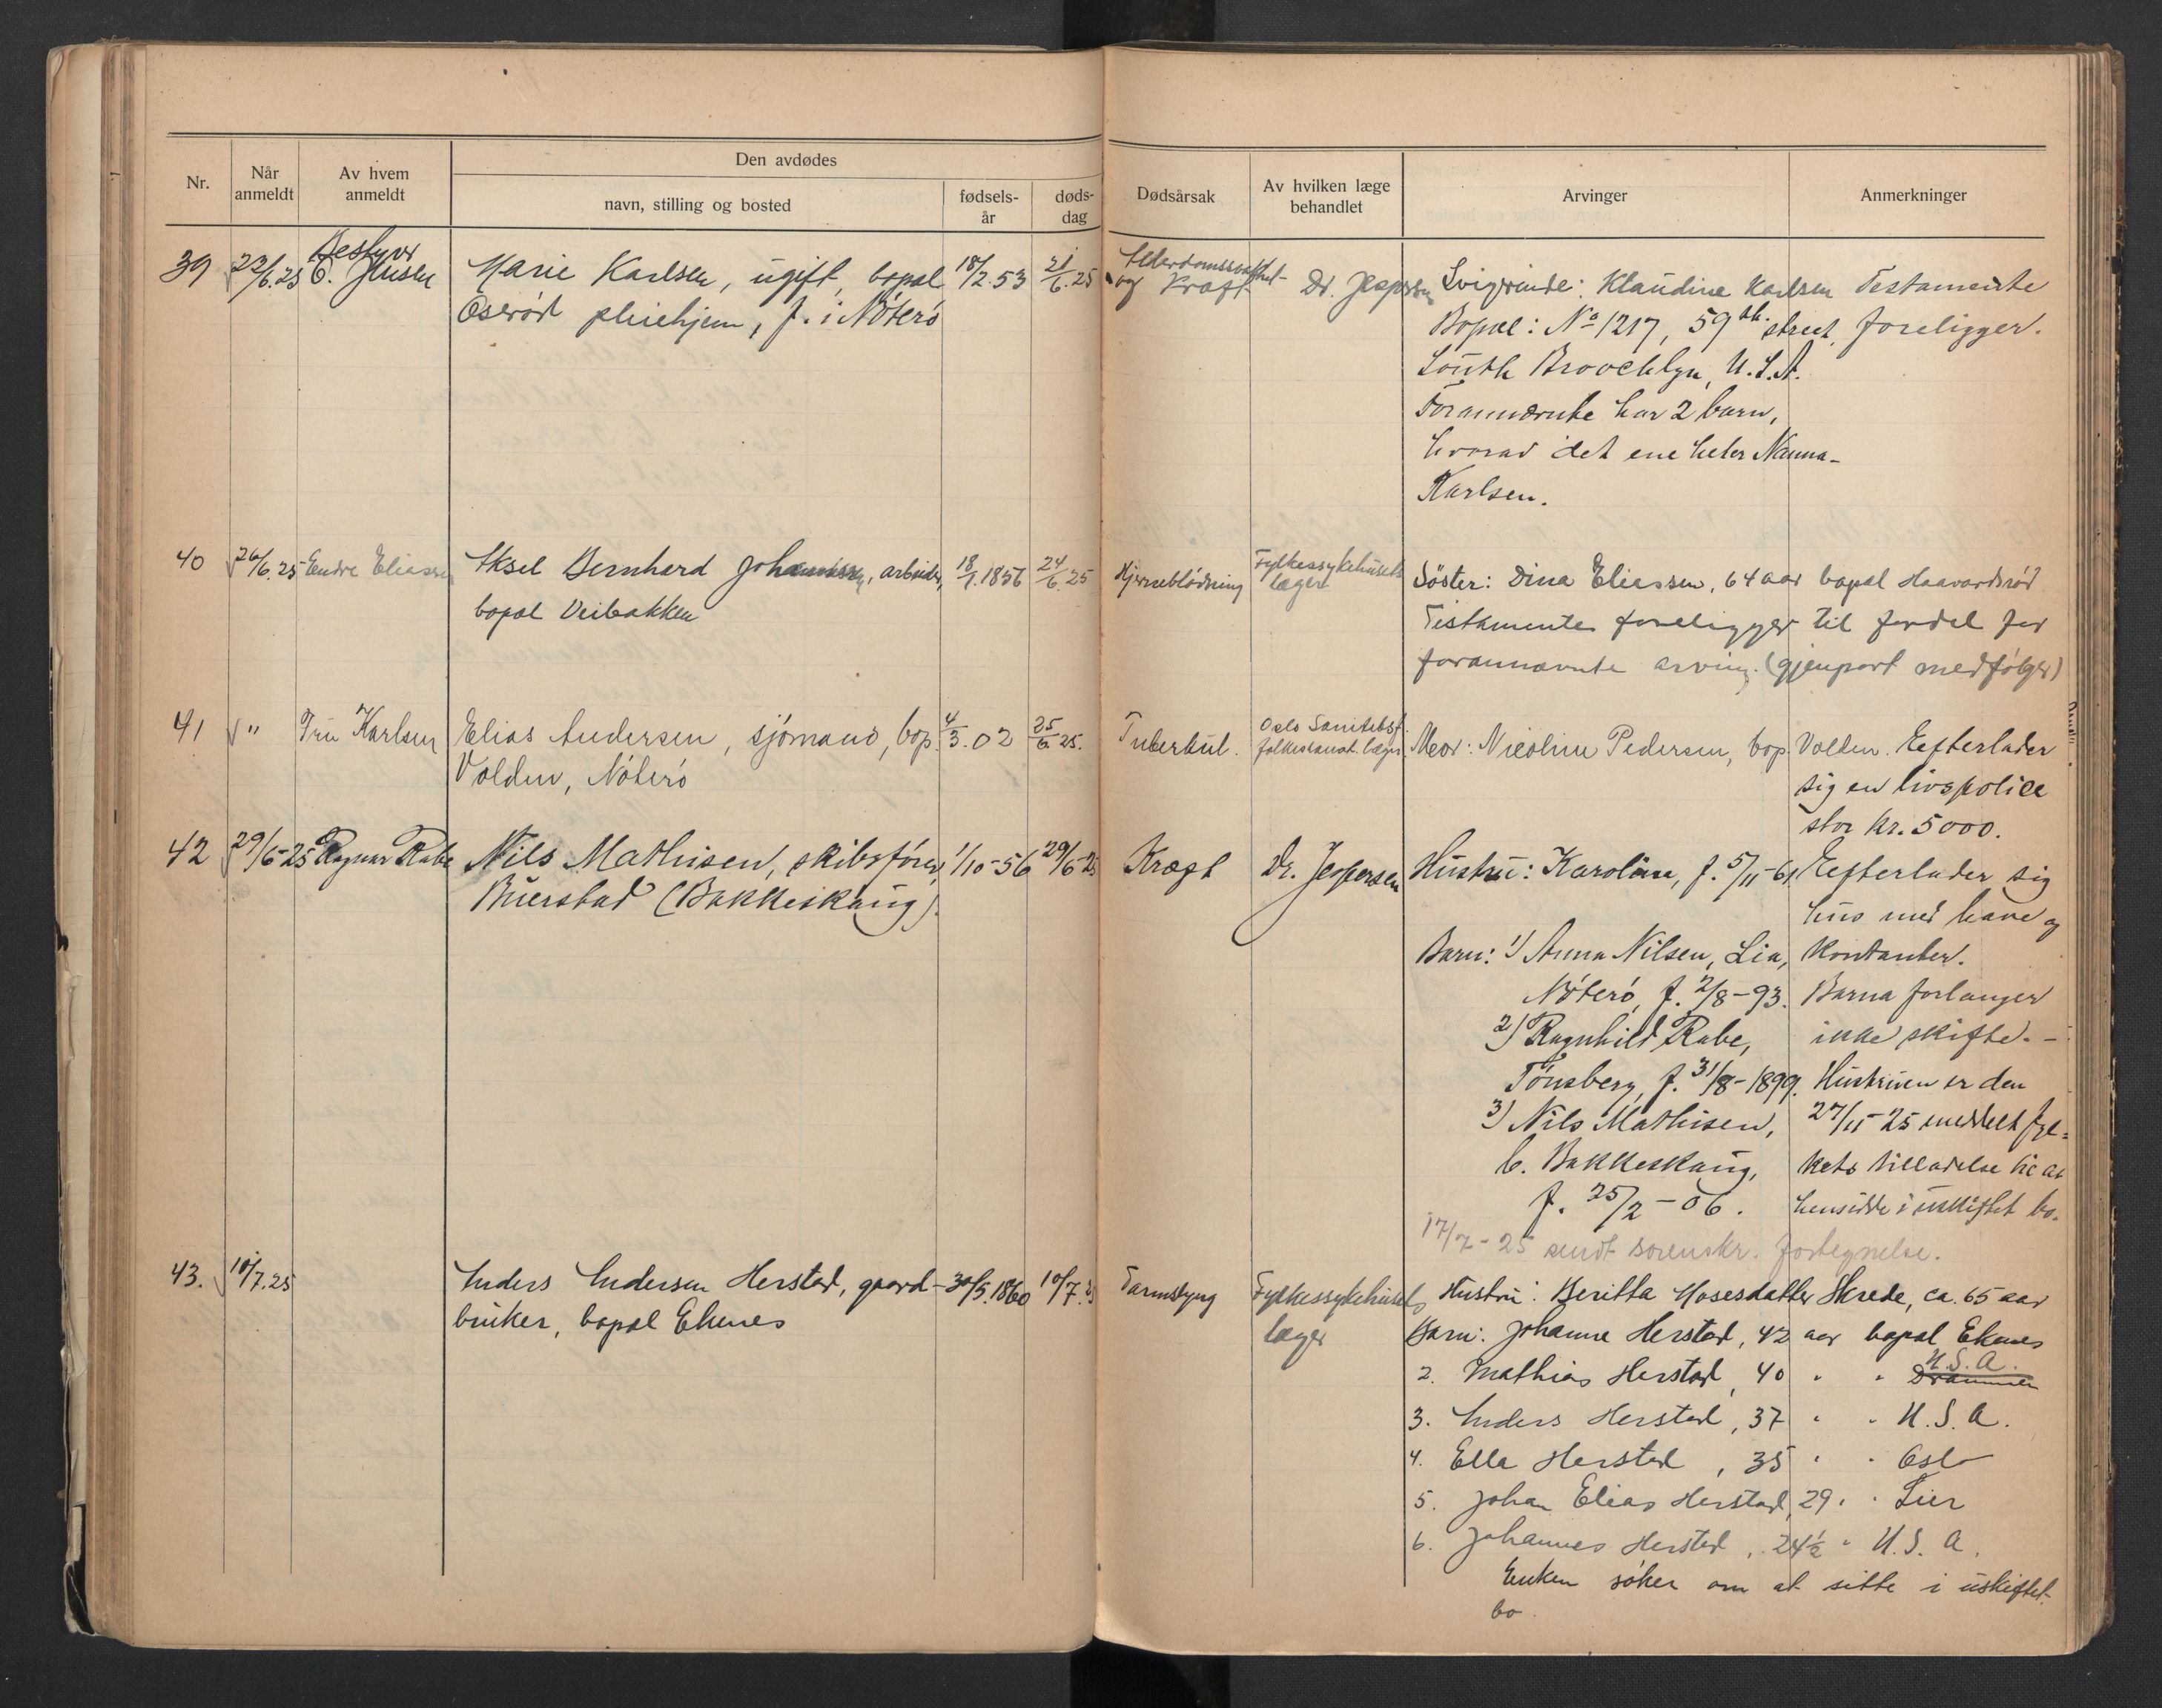 Nr.
Når anmeldt
Av hvem anmeldt
Den avdødes
navn, stilling og bosted
fødsels-år
døds-dag
Dødsårsak
Av hvilken læge behandlet
Arvinger
Anmerkninger
39 22/6.25 Bestyrer
Marie Karlsen, ugift, bopæl 18/2.53 21/6.25
Oserød pleiehjem, f. i Nöterö
og Kræft Dr. Jespersen
Svigerinde: Klaudine Karlsen Testamente
Bopæl: No 1217, 59th. street, foreligger.
South Broocklyn, U.S.A.
Forannævnte har 2 barn,
hvorav det ene heter Nanna
Karlsen.
40 26/6.25 Endre Eliassen Aksel Bernhard Johannessen, arbeider, 18/1.1856 24/6.25
bopæl Veibakken
Hjerneblödning Fylkessykehusets
læger
Söster: Dina Eliassen, 64 aar bopæl Haavardsrød
Testamente foreligger til fordel for
forannævnte arving. (gjenpart medfølger)
41 " Fru Karlsen Elias Andersen, sjömand, bop. 4/3.02 25/6.25.
Volden, Nöterö
Tuberkul. Oslo Sanitetsf.
folkesanat. læger.
Mor: Nicoline Pedersen, bop. Volden. Eefterlader
sig en livspolice
stor kr. 5000.
42 29/6-25 Ragnar Rabe Nils Mathisen, skibsförer, 1/10-56 29/6-25
Buerstad (Bakkeskaug).
Kræft Dr. Jespersen
Hustru: Karoline, f. 5/11-61 Eefterlader sig
hus med have og
Barn: 1) Anna Nilsen, Lia, kontanter.
Nöterö, f. 2/8-93. Barna forlanger
2) Ragnhild Rabe, ikke skifte. -
Tönsberg, f. 31/8-1899. Hustruen er den
3) Nils Mathisen, 27/11-25 meddelt fyl-
b. Bakkeskaug, kets tilladelse til at
f. 25/2-06. hensidde i uskiftet bo.
17/7-25 sendt sorenskr. fortegnelse.
43. 10/7.25 Anders Andersen Herstad, gaard- 30/5.1860 10/7.25
bruker, bopæl Ekenes
Tarmslyng Fylkessykehusets
læger
Hustru: Beritta Mosesdatter Skrede, ca. 65 aar
Barn: Johanne Herstad, 42 aar bopæl Ekenes
U.S.A.
2. Mathias Herstad, 40 " " Drammen
3. Anders Herstad, 37 " " U.S.A.
4. Ella Herstad, 35 " " Oslo
5. Johan Elias Herstad, 29 " " Lier
6. Johannes Herstad, 24½ " U.S.A.
Enken söker om at sitte i uskiftet
bo.